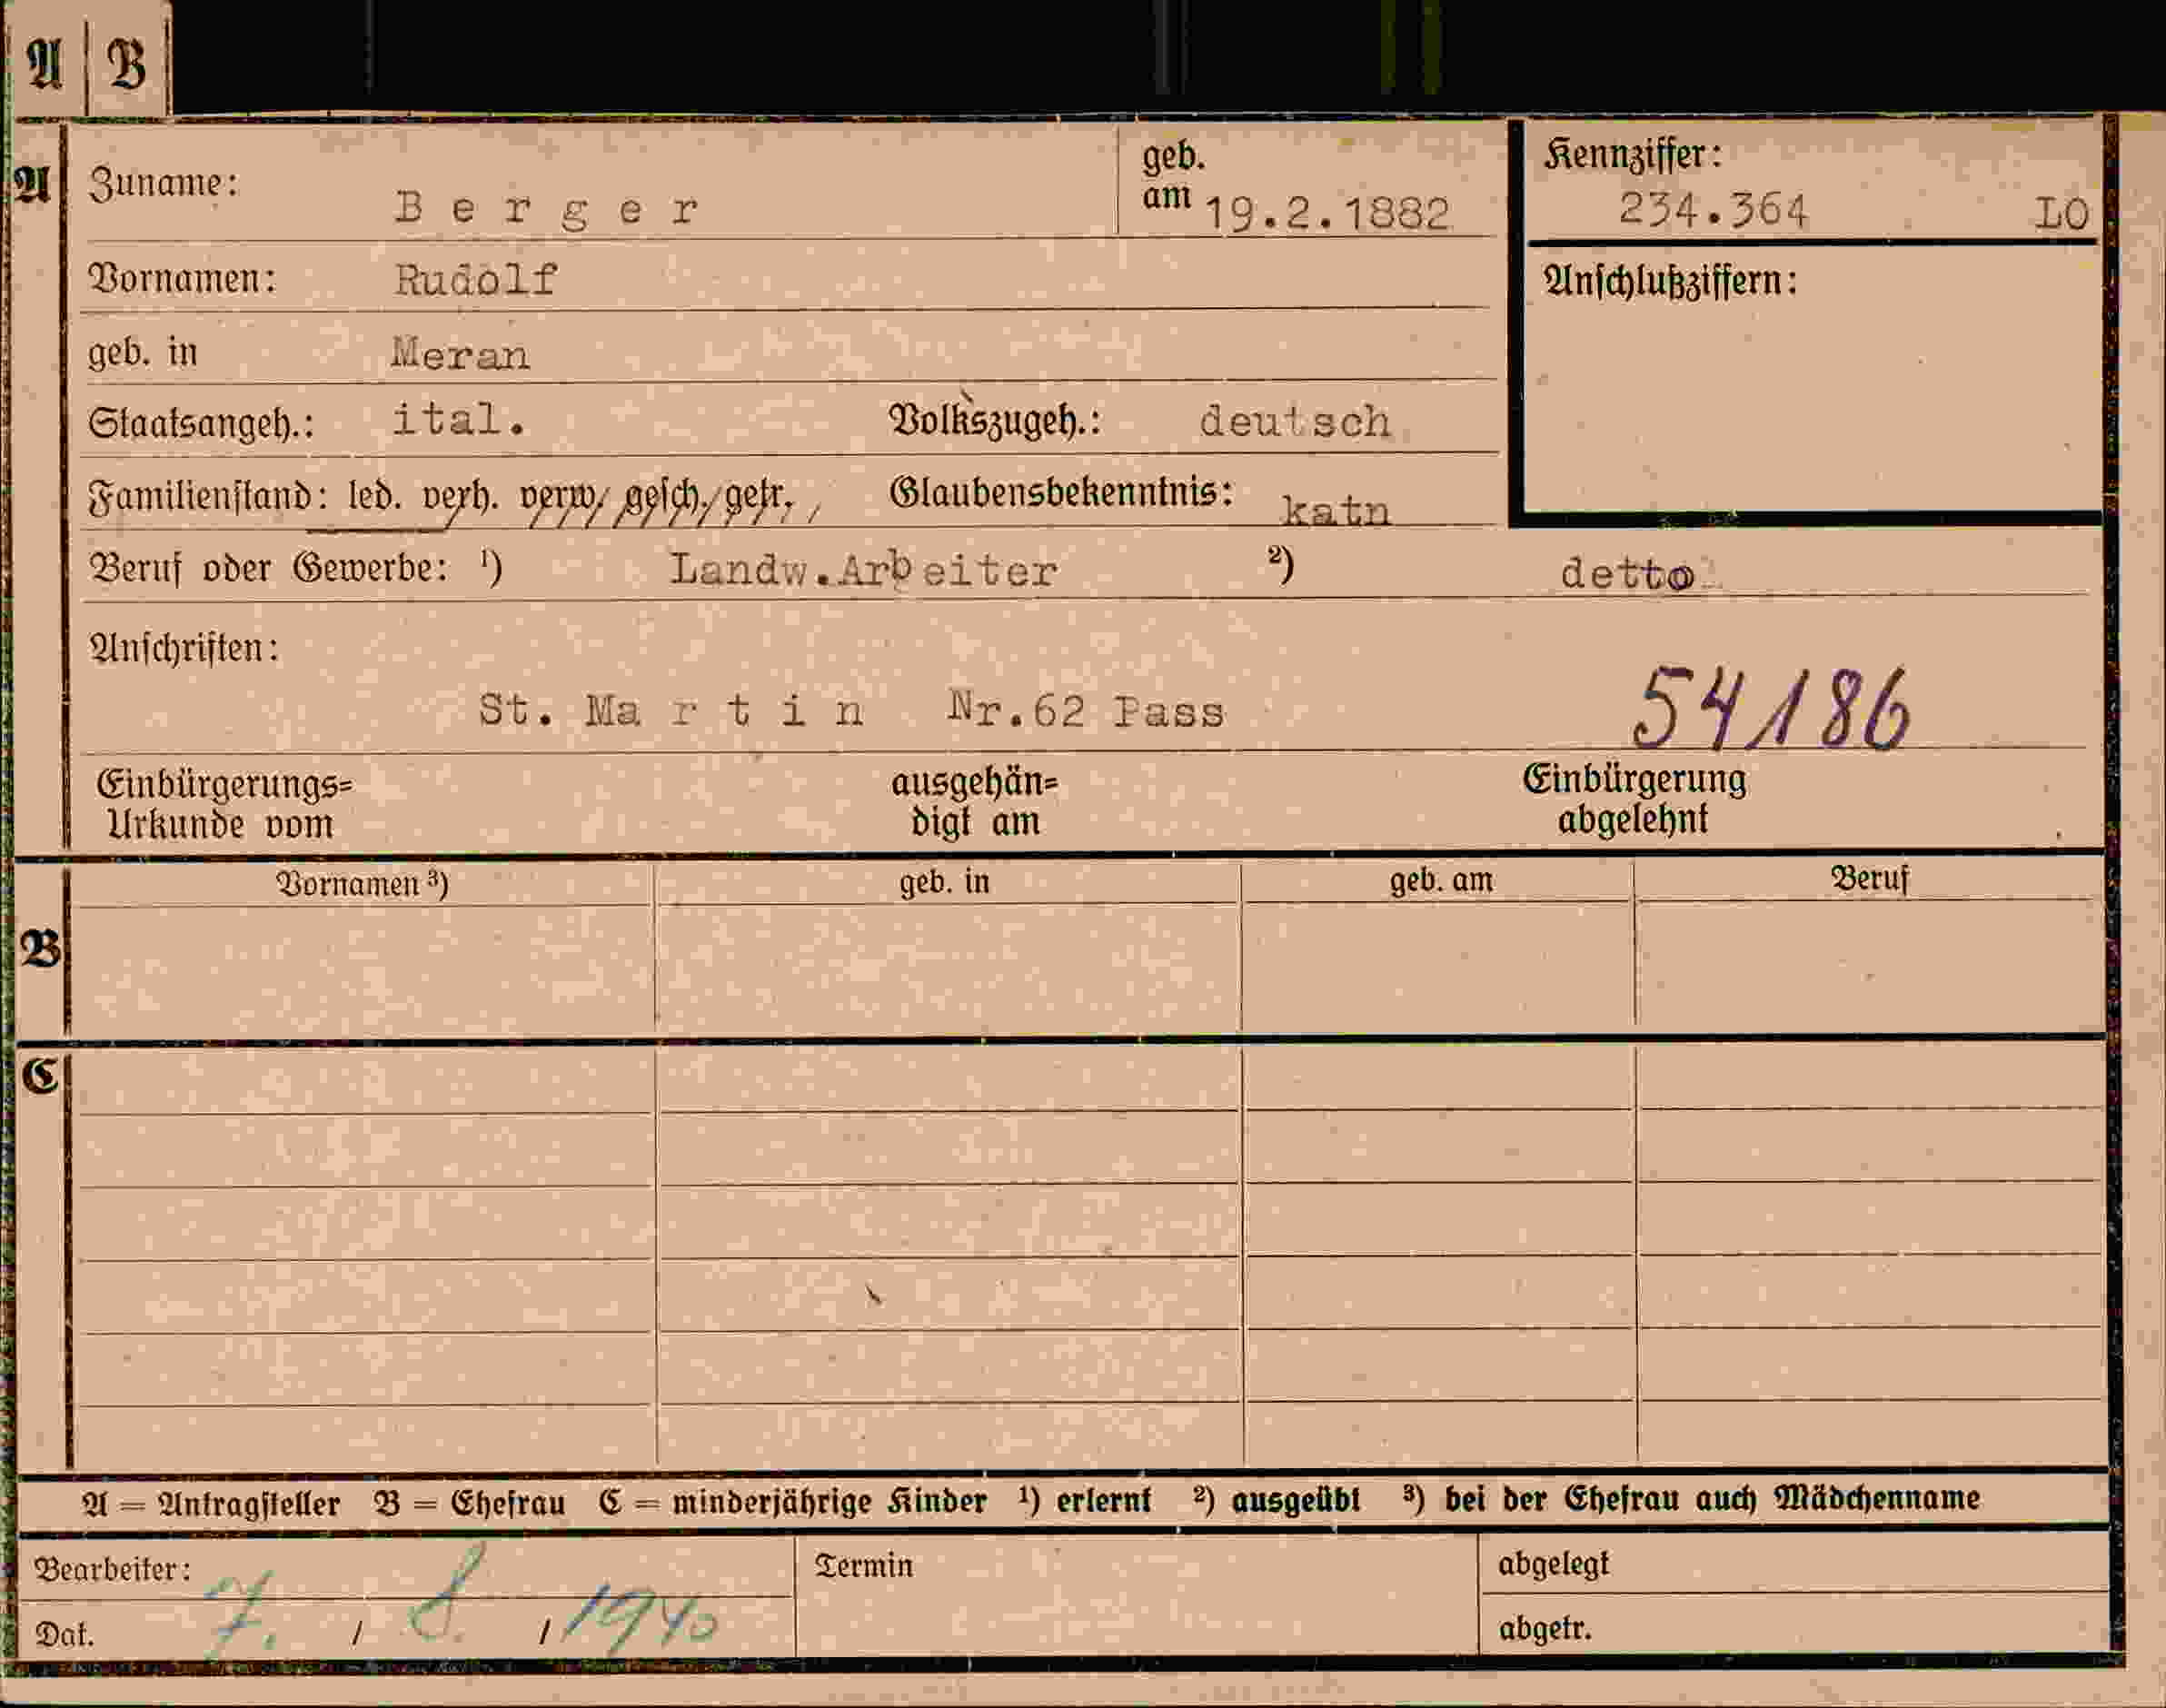 A B
A Zuname: Berger geb. am 19.2.1882 Kennziffer: 234.364 LO
Vornamen: Rudolf Anschlußziffern:
geb. in Meran
Staatsangeh.: ital. Volkszugeh.: deutsch
Familienstand: led. verh. verw. gesch. getr. Glaubensbekenntnis: kath
Beruf oder Gewerbe: ¹) Landw.Arbeiter ²) detto
Anschriften:
St. Martin Nr.62 Pass 54186
Einbürgerungs= ausgehän= Einbürgerung
Urkunde vom digt am abgelehnt
Vornamen ³) geb. in geb. am Beruf
B
C
A = Antragsteller B = Ehefrau C = minderjährige Kinder ¹) erlernt ²) ausgeübt ³) bei der Ehefrau auch Mädchenname
Bearbeiter: Termin abgelegt
Dat. 7. / 8. / 1940 abgetr.